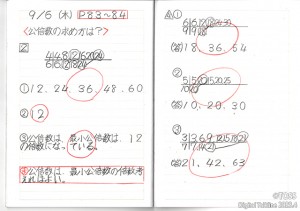 9/6 (木) P83〜84
<公倍数の求め方は?>
2
4 4,8,12,16,20,24
6 6,12,18,24
① 12.24.36.48.60
② 12
③ 公倍数は、最小公倍数、12
の倍数になっている。
公倍数は、最小公倍数の倍数考
えればよい。
①
6 6,12,18,24,30
9 9,18
(答) 18.36.54
②
5 5,10,15,20,25
(答) 10.20.30
③
3 3,6,9,12,15,18,21
7 7,14,21
(答) 21.42.63
©TOSS
Digital TalkLine 2023.4